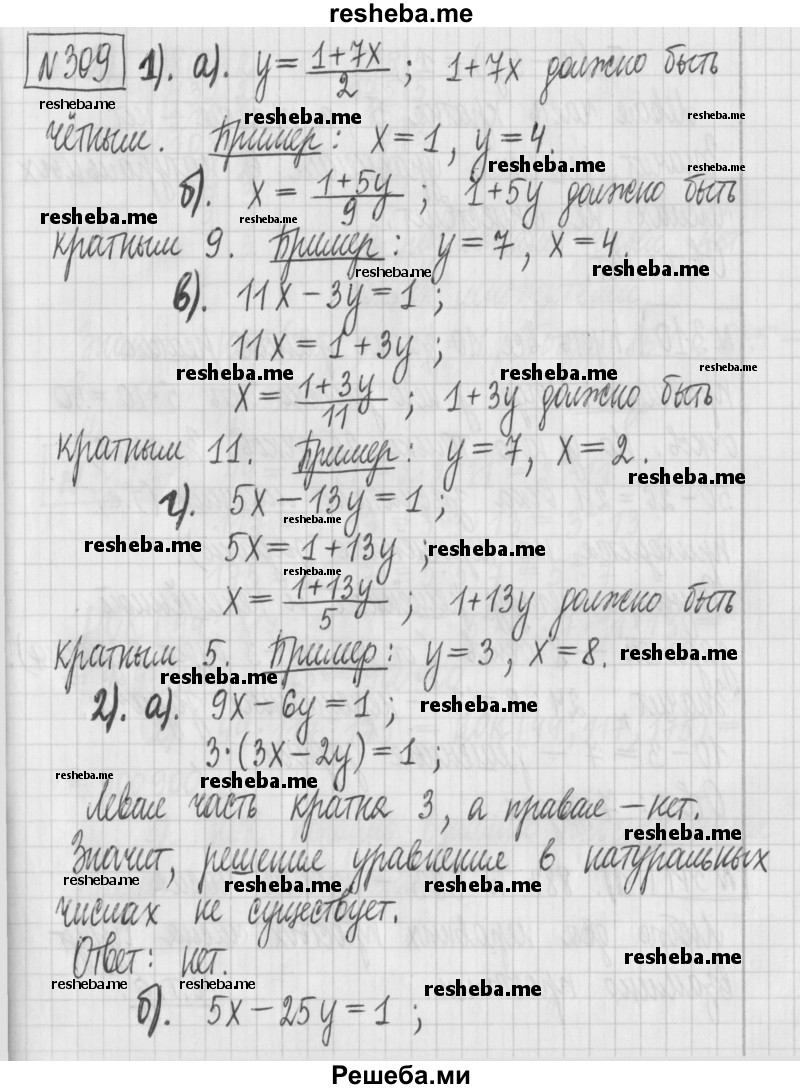 resheba.me
№309 1). а). y = (1+7x)/2 ; 1+7x должно быть
resheba.me resheba.me resheba.me
чётным. Пример: x=1, y=4.
resheba.me resheba.me
б). x = (1+5y)/9 ; 1+5y должно быть
resheba.me resheba.me resheba.me
кратным 9. Пример: y=7, x=4.
resheba.me resheba.me
в). 11x-3y=1 ;
11x = 1+3y ;
resheba.me resheba.me resheba.me
x = (1+3y)/11 ; 1+3y должно быть
кратным 11. Пример: y=7, x=2.
resheba.me
г). 5x-13y=1 ;
resheba.me
resheba.me 5x=1+13y ; resheba.me
resheba.me
x = (1+13y)/5 ; 1+13y должно быть
кратным 5. Пример: y=3, x=8. resheba.me
resheba.me
2). а). 9x-6y=1 ; resheba.me
3·(3x-2y)=1 ;
resheba.me resheba.me
Левая часть кратна 3, а правая – нет.
resheba.me
Значит, решение уравнения в натуральных
resheba.me resheba.me resheba.me
числах не существует.
Ответ: нет. resheba.me
resheba.me resheba.me resheba.me
б). 5x-25y=1 ;
Решеба.ми